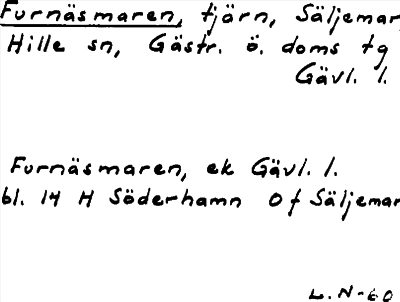 Furnäsmaren, tjärn, Säljemar,
Hille sn, Gästr. ö. doms tg
Gävl. l.
Furnäsmaren, ek Gävl. l.
bl. 14 H Söderhamn Of Säljemar
L. N-60